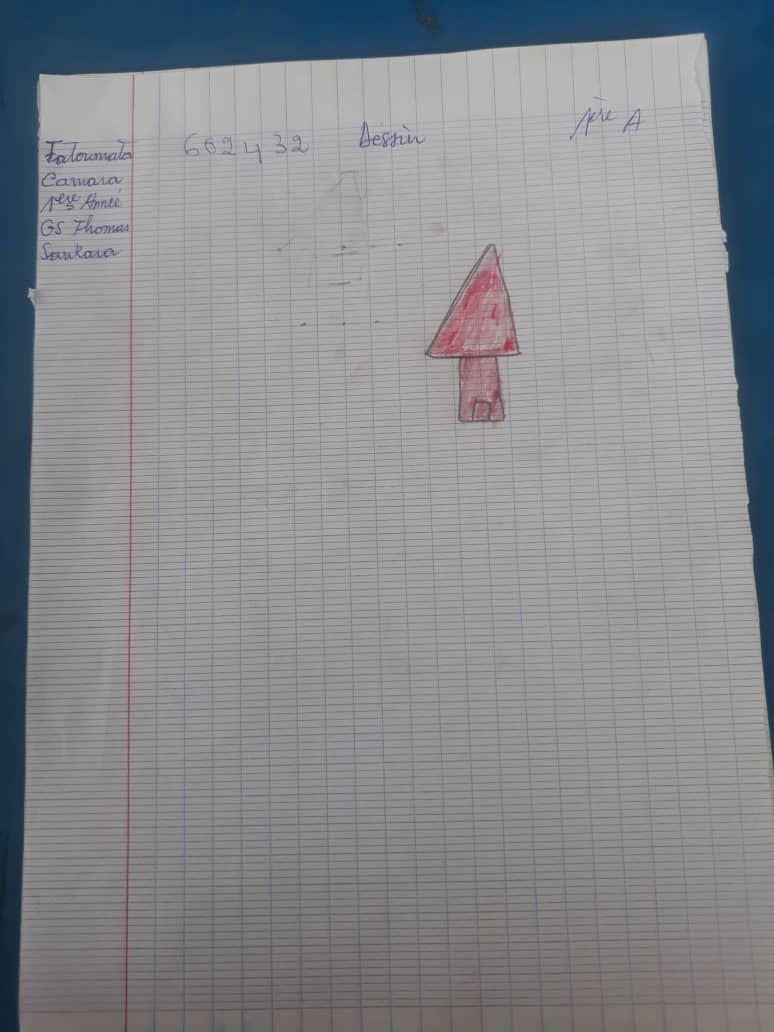 Fatoumata 662432 Déssin 1ère A
Camara
1ère Année
GS Thomas
Sankara